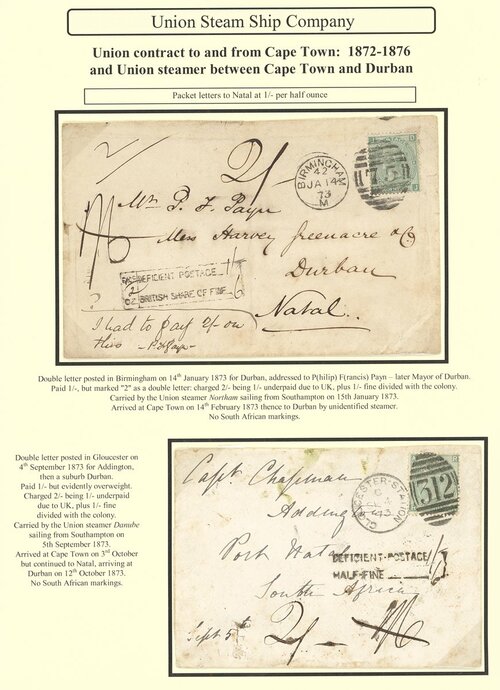 Union Steam Ship Company
Union contract to and from Cape Town: 1872-1876
and Union steamer between Cape Town and Durban
Packet letters to Natal at 1/- per half ounce
2/
2/-
BIRMINGHAM
42
JA 14
73
M
75
Mr P. F. Payn
Mess Harvey Greenacre & Co
Durban
Natal
DEFICIENT POSTAGE 1/-
BRITISH SHARE OF FINE
I had to pay 2/- on
this - P F Payn
Double letter posted in Birmingham on 14th January 1873 for Durban, addressed to P(hilip) F(rancis) Payn – later Mayor of Durban.
Paid 1/-, but marked "2" as a double letter: charged 2/- being 1/- underpaid due to UK, plus 1/- fine divided with the colony.
Carried by the Union steamer Northam sailing from Southampton on 15th January 1873.
Arrived at Cape Town on 14th February 1873 thence to Durban by unidentified steamer.
No South African markings.
Double letter posted in Gloucester on
4th September 1873 for Addington,
then a suburb Durban.
Paid 1/- but evidently overweight.
Charged 2/- being 1/- underpaid
due to UK, plus 1/- fine
divided with the colony.
Carried by the Union steamer Danube
sailing from Southampton on
5th September 1873.
Arrived at Cape Town on 3rd October
but continued to Natal, arriving at
Durban on 12th October 1873.
No South African markings.
Capt Chapman
Addington
Port Natal
South Africa
GLOUCESTER-STATION
312
DEFICIENT-POSTAGE
HALF-FINE
Sept 5th
2/-